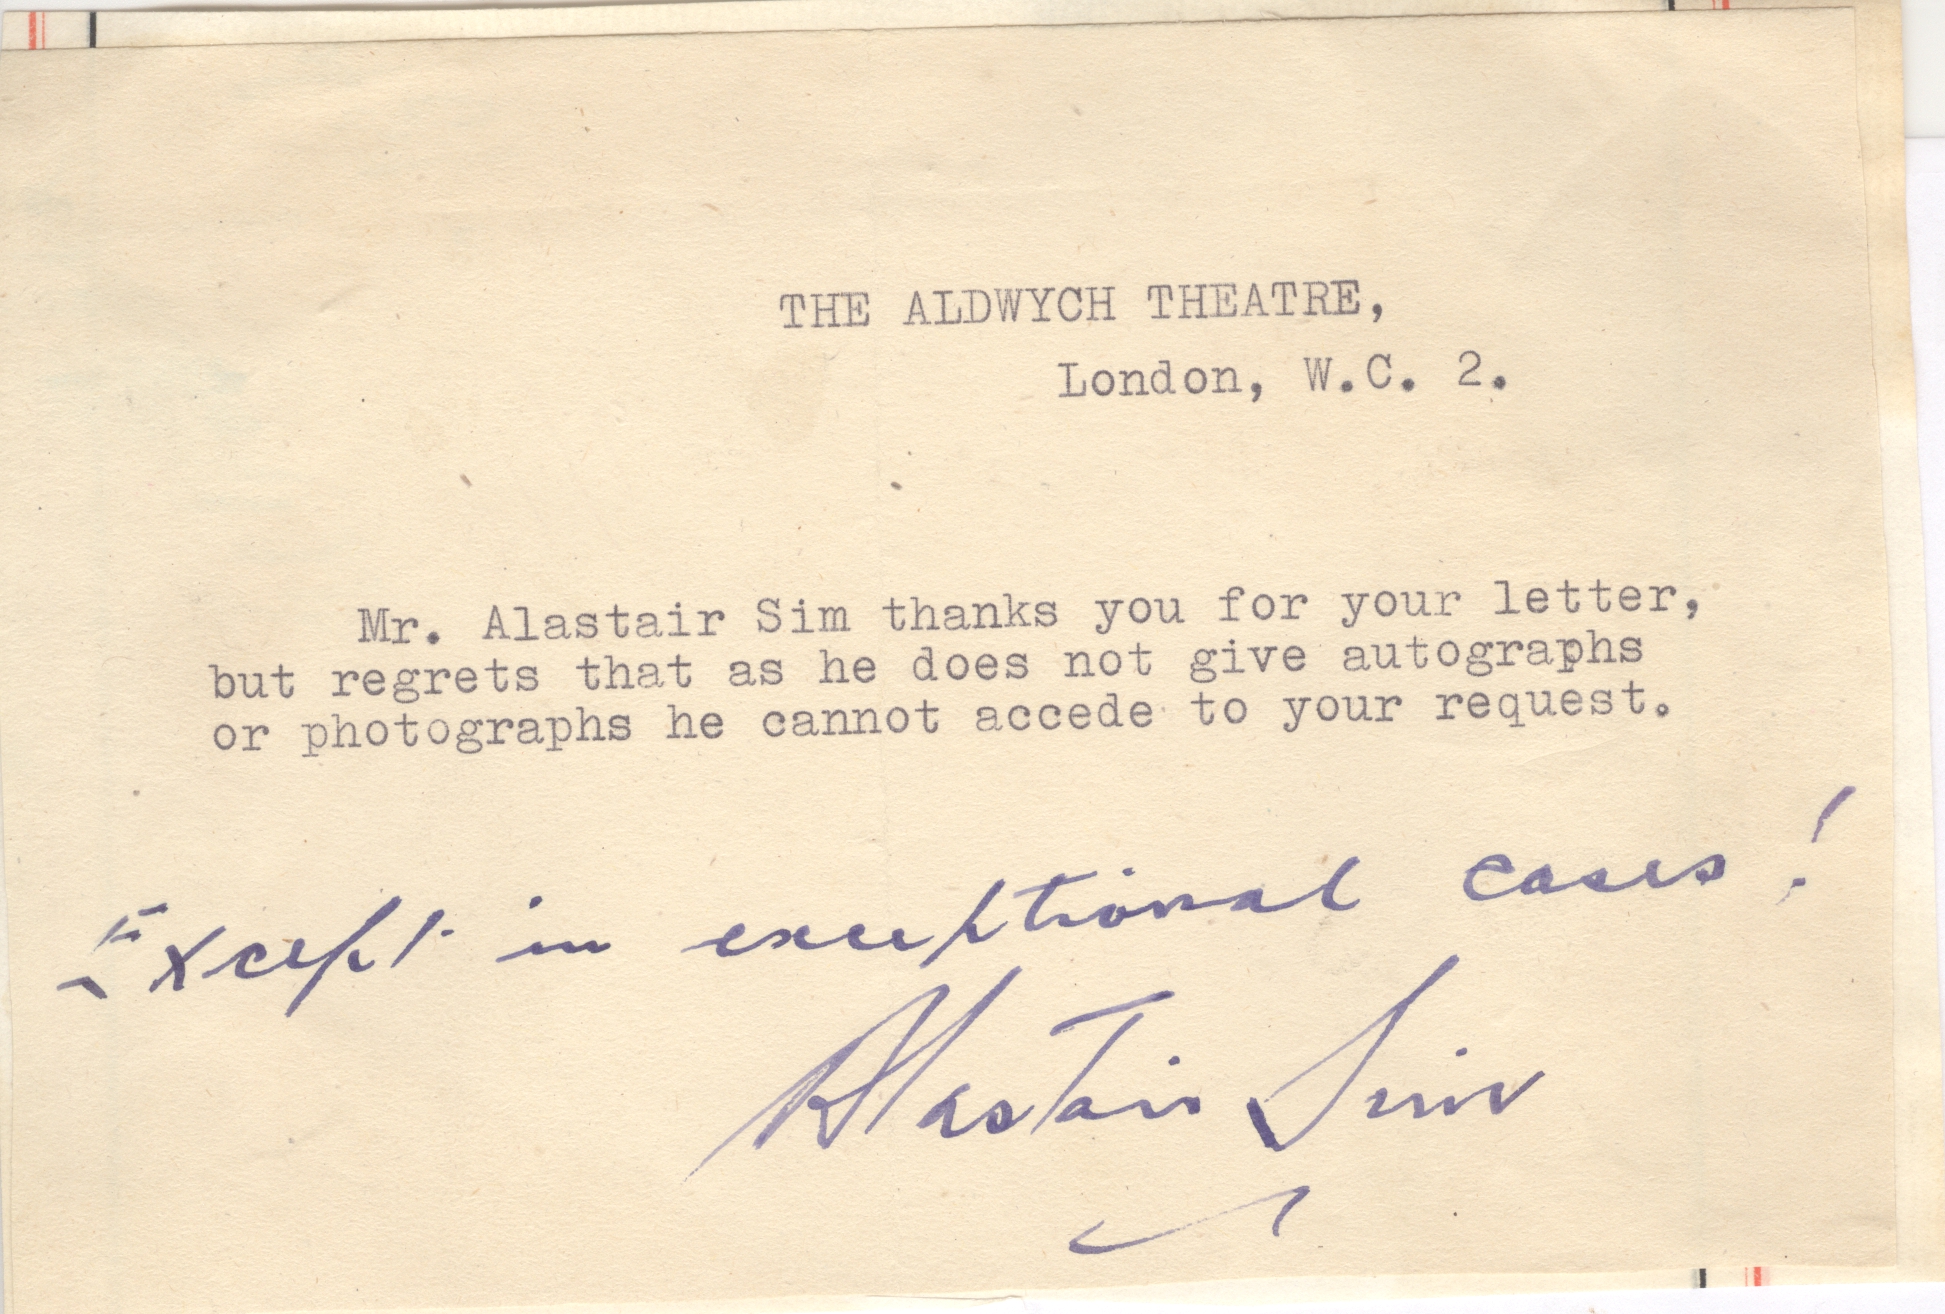 THE ALDWYCH THEATRE,
London, W.C. 2.
Mr. Alastair Sim thanks you for your letter,
but regrets that as he does not give autographs
or photographs he cannot accede to your request.
Except in exceptional cases!
Alastair Sim